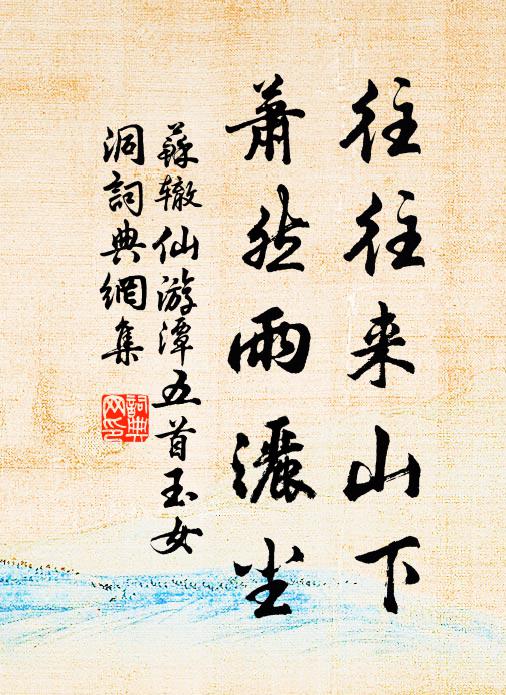 往往来山下
萧然雨灑尘
蘇辙仙游潭五首玉女
洞詞典網集
詞典